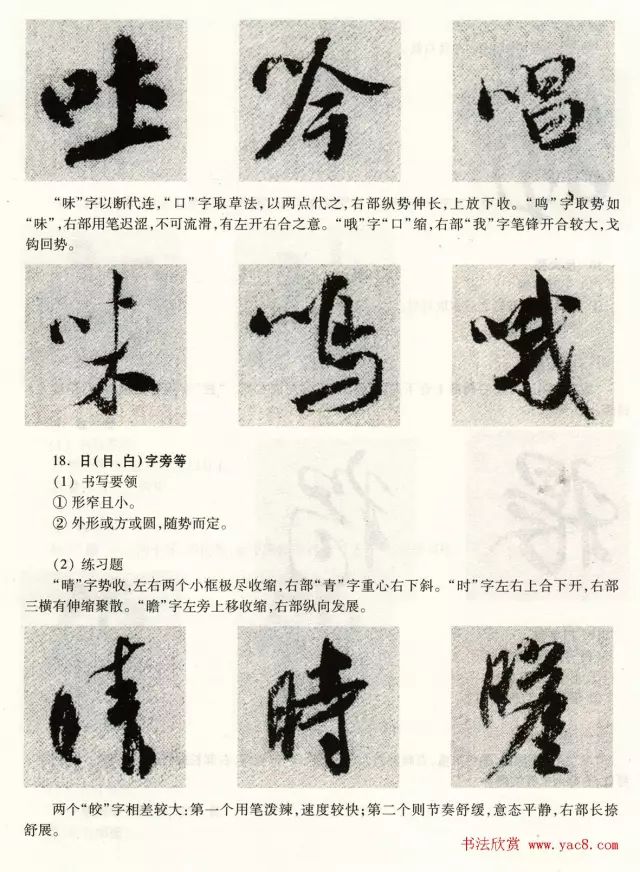 吐 吟 唱
“味”字以断代连，“口”字取草法，以两点代之，右部纵势伸长，上放下收。“鸣”字取势如
“味”，右部用笔迟涩，不可流滑，有左开右合之意。“哦”字“口”缩，右部“我”字笔锋开合较大，戈
钩回势。
味 鳴 哦
18. 日(目、白)字旁等
(1) 书写要领
① 形窄且小。
② 外形或方或圆，随势而定。
(2) 练习题
“晴”字势收，左右两个小框极尽收缩，右部“青”字重心右下斜。“时”字左右上合下开，右部
三横有伸缩聚散。“瞻”字左旁上移收缩，右部纵向发展。
晴 時
两个“皎”字相差较大：第一个用笔泼辣，速度较快；第二个则节奏舒缓，意态平静，右部长捺
舒展。
书法欣赏 www.yac8.com